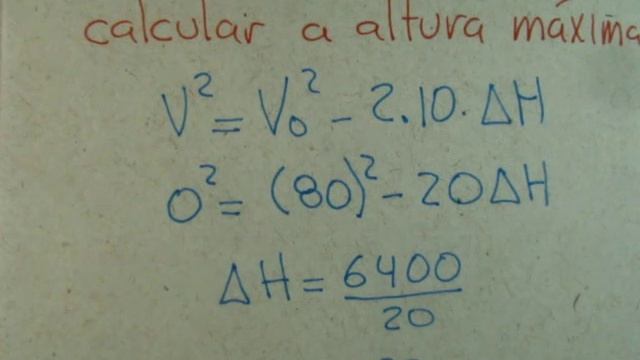 calcular a altura máxima
V² = V₀² - 2.10.ΔH
0² = (80)² - 20ΔH
ΔH = 6400/20